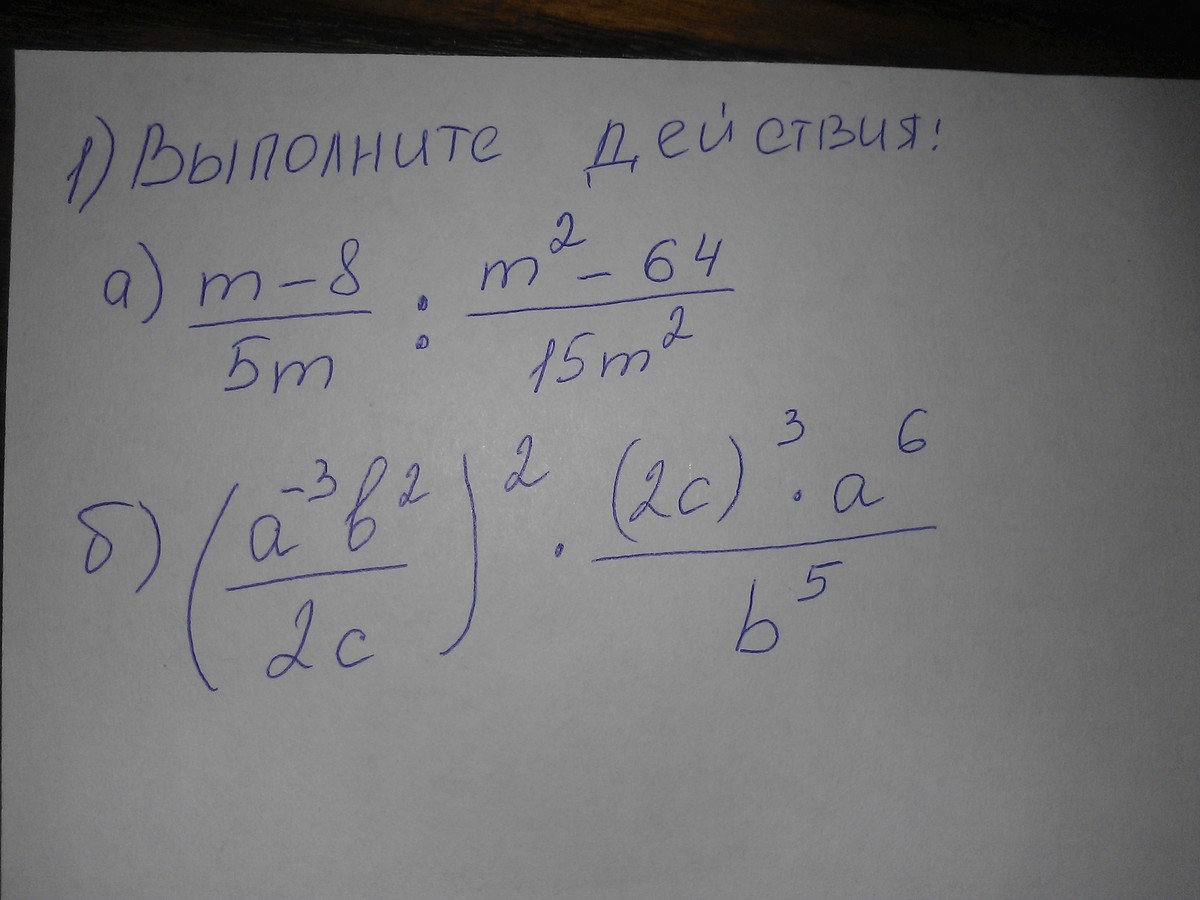 1) Выполните действия:
а) \frac{m-8}{5m} : \frac{m^2-64}{15m^2}
б) \left(\frac{a^{-3}b^2}{2c}\right)^2 \cdot \frac{(2c)^3 \cdot a^6}{b^5}